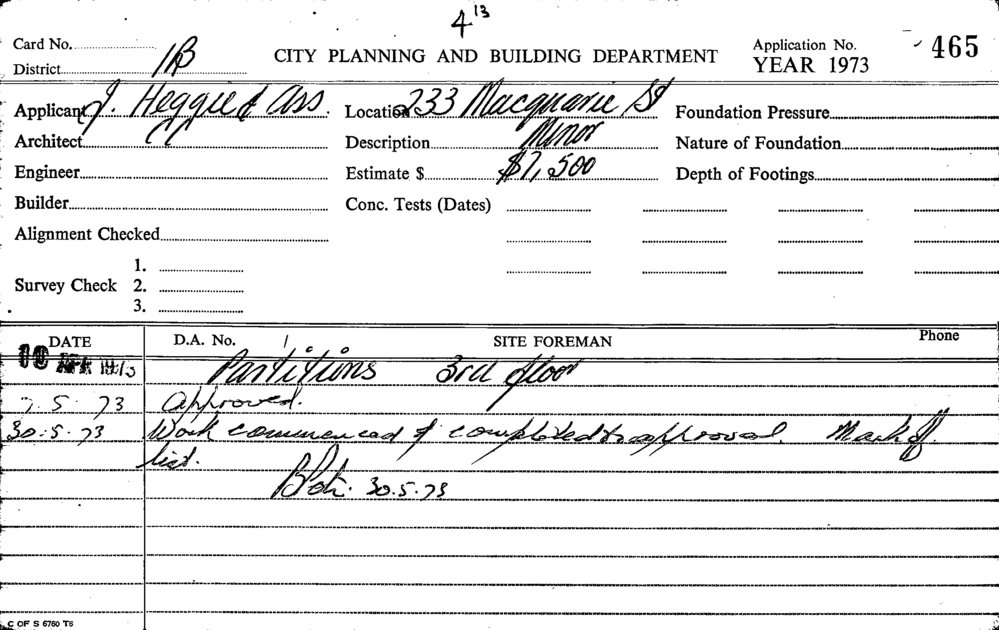 4 13
Card No. Application No. 465
District 1B CITY PLANNING AND BUILDING DEPARTMENT YEAR 1973
Applicant J. Heggie & Ass. Location 233 Macquarie St Foundation Pressure
Architect CC Description Minor Nature of Foundation
Engineer Estimate $ $7,500 Depth of Footings
Builder Conc. Tests (Dates)
Alignment Checked
1.
Survey Check 2.
3.
DATE D.A. No. / SITE FOREMAN Phone
10 APR 1973 Partitions 3rd floor
7.5.73 Approved.
30.5.73 Work commenced & completed to approval. Mark off
list.
30.5.73
C OF S 6760 T6